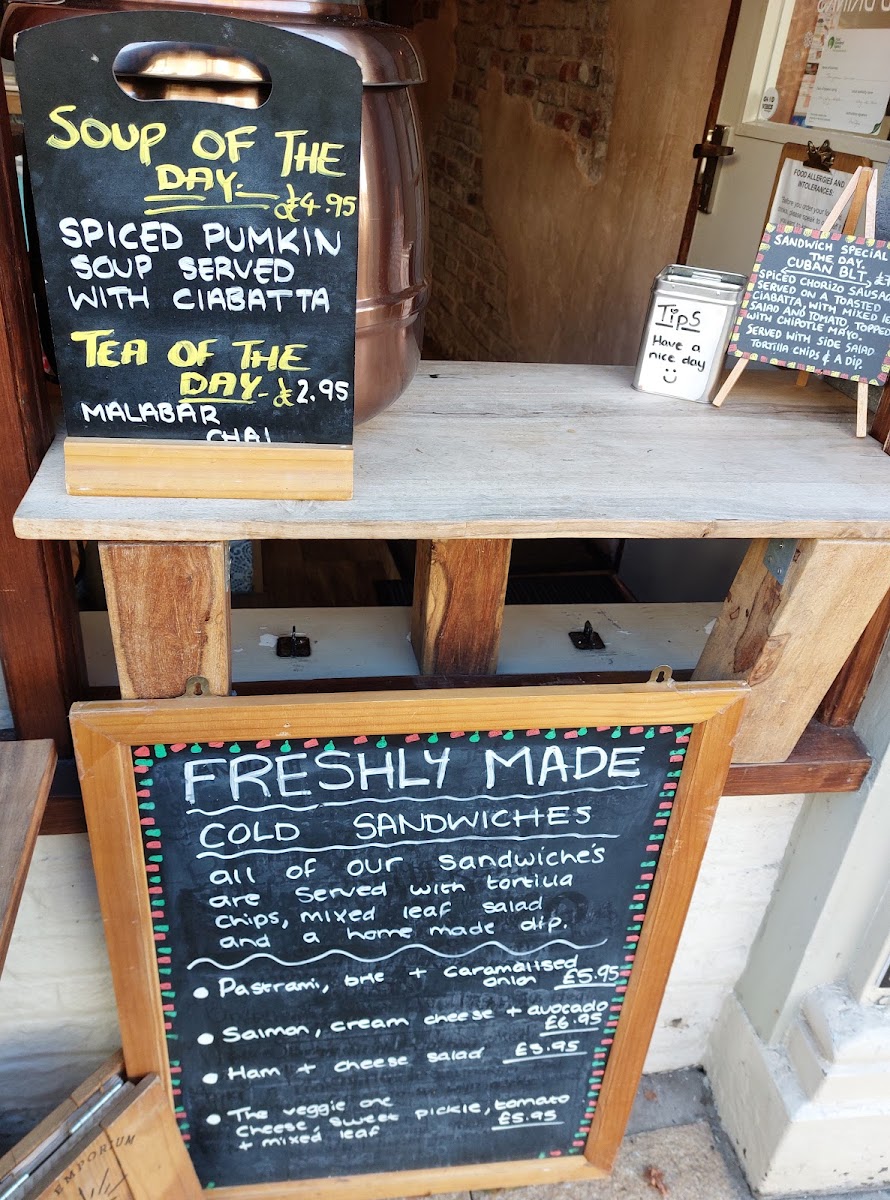 SOUP OF THE
DAY. £4.95
SPICED PUMKIN
SOUP SERVED
WITH CIABATTA
TEA OF THE
DAY. £2.95
MALABAR
CHAI
Tips
Have a
nice day
FOOD ALLERGIES AND
INTOLERANCES
SANDWICH SPECIAL
THE DAY.
CUBAN BLT
SPICED CHORIZO
SERVED ON A TOASTED
CIABATTA, WITH MIXED
SALAD AND TOMATO, TOPPED
WITH CHIPOTLE MAYO.
SERVED WITH SIDE SALAD
TORTILLA CHIPS & A DIP.
FRESHLY MADE
COLD SANDWICHES
all of our sandwiche's
are served with tortilla
chips, mixed leaf salad
and a home made dip.
Pastrami, brie + caramalised
onion £5.95
Salmon, cream cheese + avocado
£6.95
Ham + cheese salad £5.95
The veggie one
cheese, sweet pickle, tomato
+ mixed leaf £5.95
EMPORIUM